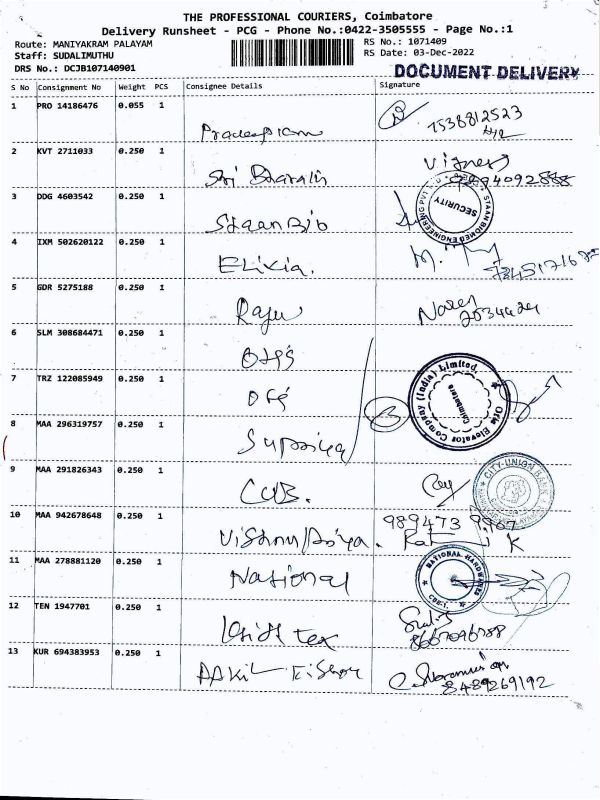 THE PROFESSIONAL COURIERS, Coimbatore
Delivery Runsheet - PCG - Phone No.:0422-3505555 - Page No.:1
Route: MANIYAKRAM PALAYAM
Staff: SUDALIMUTHU
DRS No.: DCJB107140901
RS No.: 1071409
RS Date: 03-Dec-2022
DOCUMENT DELIVERY
S No Consignment No Weight PCS Consignee Details Signature
1 PRO 14186476 0.055 1
7538812523
2 KVT 2711033 0.250 1 Sri Bharath
3 DDG 4603542 0.250 1 StaanBio
STAAN BIOMED ENGINEERING PVT LTD
SECURITY
4 IXM 502620122 0.250 1 Elixia.
5 GDR 5275188 0.250 1 Raju Naren
6 SLM 308684471 0.250 1 Otis
7 TRZ 122085949 0.250 1
Otis Elevator Company (India) Limited.
Coimbatore
8 MAA 296319757 0.250 1 Supriya
9 MAA 291826343 0.250 1 CUB.
CITY UNION BANK
10 MAA 942678648 0.250 1 Vishnupriya.
11 MAA 278881120 0.250 1 National
NATIONAL HARDWARES
12 TEN 1947701 0.250 1
8667096788
13 KUR 694383953 0.250 1 AAKIL Kishor
8489269192